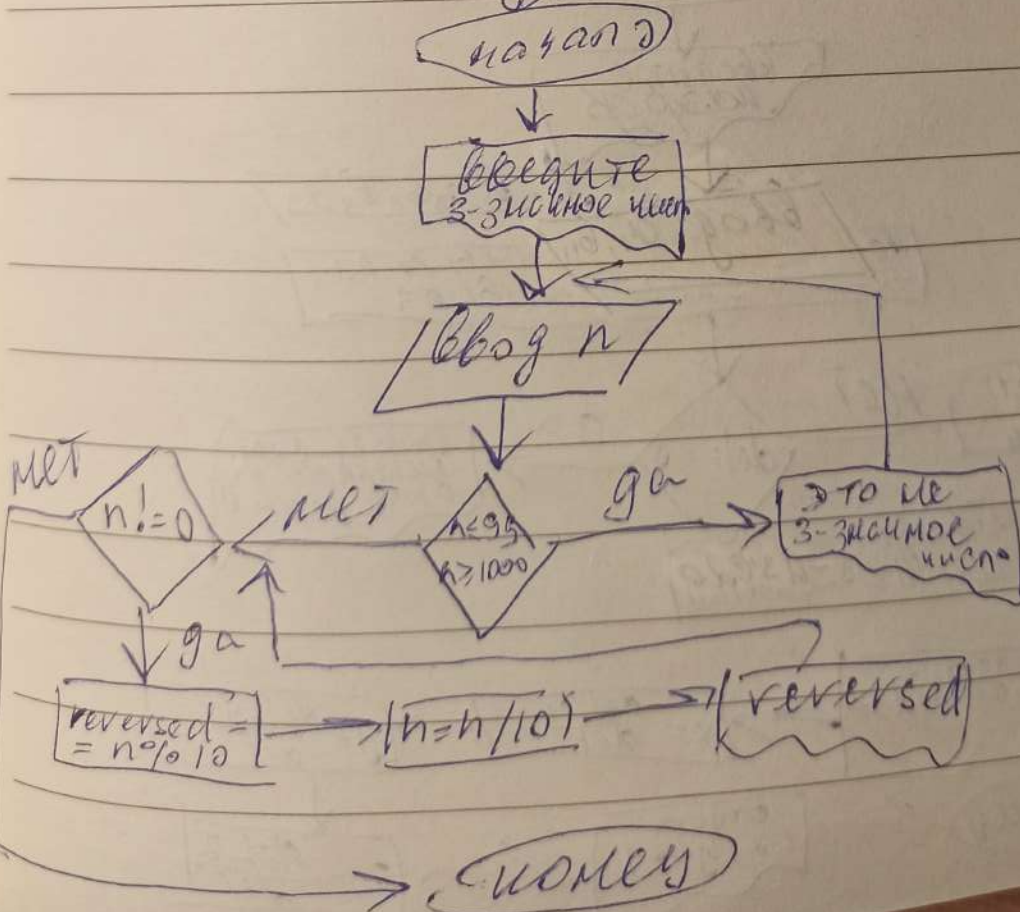 начало
введите
3-значное число
ввод n
нет
n!=0
нет
n≤99
n≥1000
да
это не
3-значное
число
да
reversed =
= n%10
n=n/10
reversed
конец